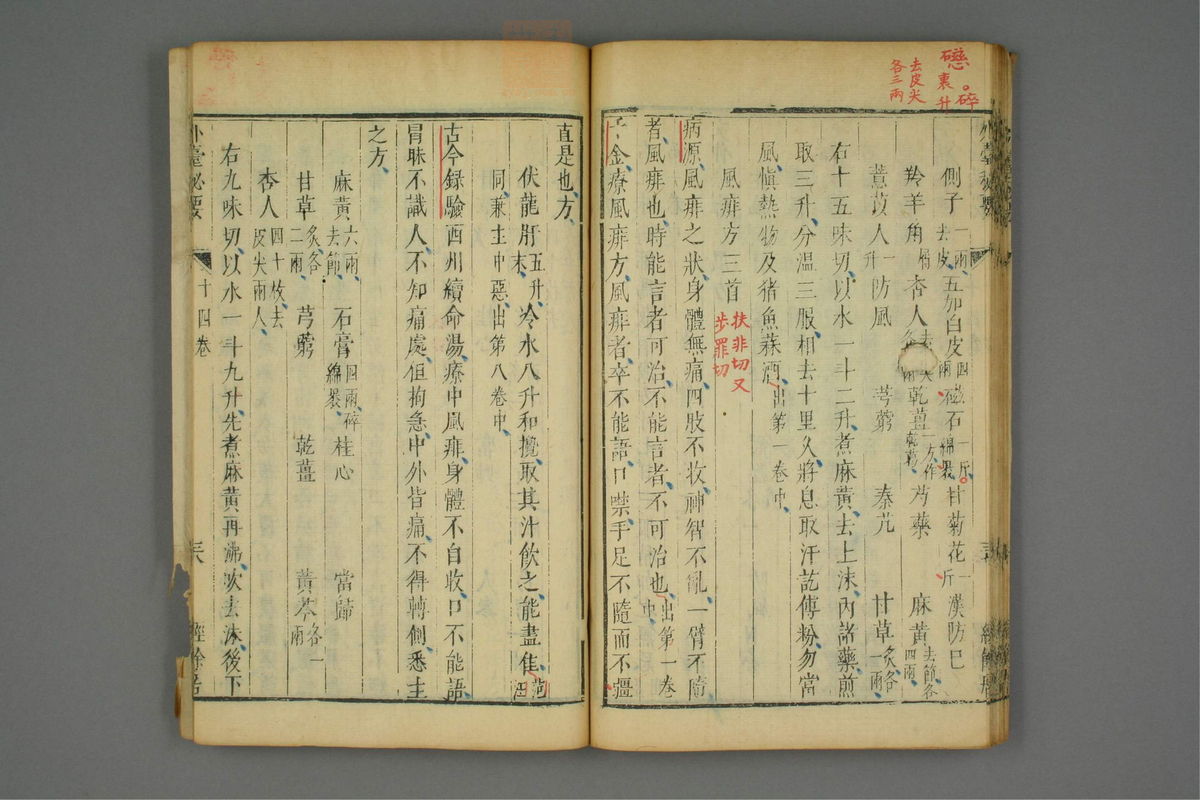 側子一兩去皮 五加白皮四兩 磁石一斤綿裹 甘菊花一斤 漢防巳
羚羊角屑 杏人 乾薑一方作乾葛 芍藥 麻黃去節各四兩
薏苡人一升 防風 芎藭 秦艽 甘草炙各一兩
右十五味切以水一斗二升煮麻黃去上沫內諸藥煎
取三升分溫三服相去十里久將息取汗訖傅粉勿當
風愼熱物及猪魚蒜酒出第一卷中
風痱方三首
扶非切又
步罪切
病源風痱之狀身體無痛四肢不收神智不亂一臂不隨
者風痱也時能言者可治不能言者不可治也出第一卷中
千金療風痱方風痱者卒不能語口噤手足不隨而不彊
直是也方
伏龍肝五升末 冷水八升和攪取其汁飲之能盡佳范汪
同兼主中惡出第八卷中
古今録驗西州續命湯療中風痱身體不自收口不能語
冒昧不識人不知痛處但拘急中外皆痛不得轉側悉主
之方
麻黃六兩去節 石膏四兩碎綿裹 桂心 當歸
甘草炙各二兩 芎藭 乾薑 黃芩各一兩
杏人四十枚去皮尖兩人
右九味切以水一斗九升先煮麻黃再沸吹去沫後下
外臺秘要 十四卷
裹升
碎
去皮尖
各三兩